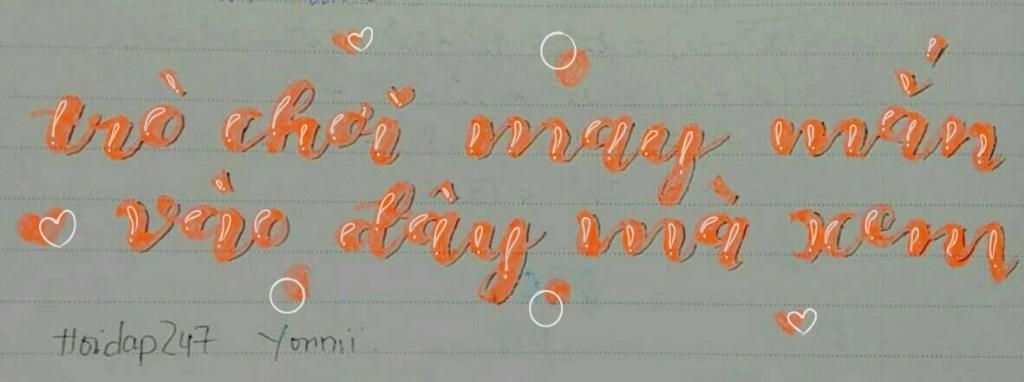 trò chơi may mắn
vào đây mà xem
Hoidap247 Yonnii